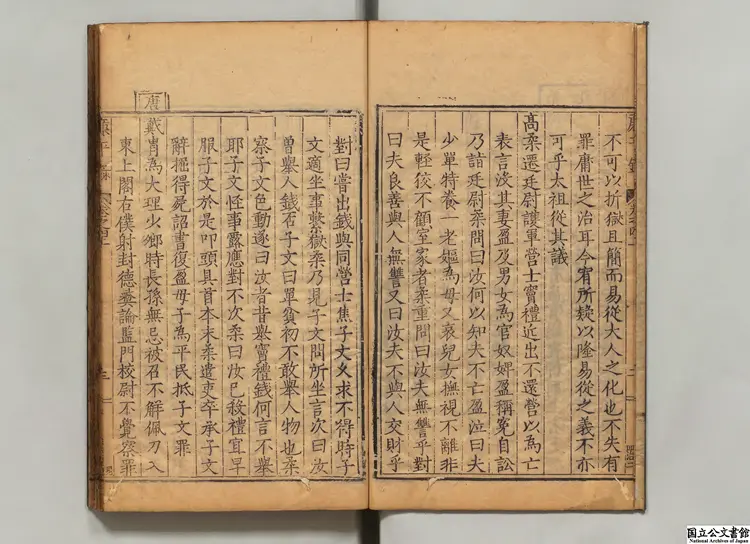 不可以折獄且簡而易從大人之化也不失有
罪庸世之治耳今宥所疑以隆易從之義不亦
可乎太祖從其議
高柔遷廷尉護軍營士竇禮近出不還營以為亡
表言沒其妻盈及男女為官奴婢盈稱冤自訟
乃詣廷尉柔問曰汝何以知夫不亡盈泣曰夫
少單特養一老嫗為母又哀兒女撫視不離非
是輕狡不顧室家者柔重問曰汝夫無讐乎對
曰夫良善與人無讐又曰汝夫不與人交財乎
對曰嘗出錢與同營士焦子文久求不得時子
文適坐事繫獄柔乃見子文問所坐言次曰汝
曽舉人錢否子文曰單貧初不敢舉人物也柔
察子文色動遂曰汝昔舉竇禮錢何言不舉
耶子文怪事露應對不次柔曰汝已殺禮宜早
服子文於是叩頭具首本末柔遣吏卒承子文
辭掘得屍詔書復盈母子為平民抵子文罪
唐
戴胄為大理少卿時長孫無忌被召不解佩刀入
東上閤右僕射封德彝論監門校尉不覺察罪
國立公文書館
National Archives of Japan